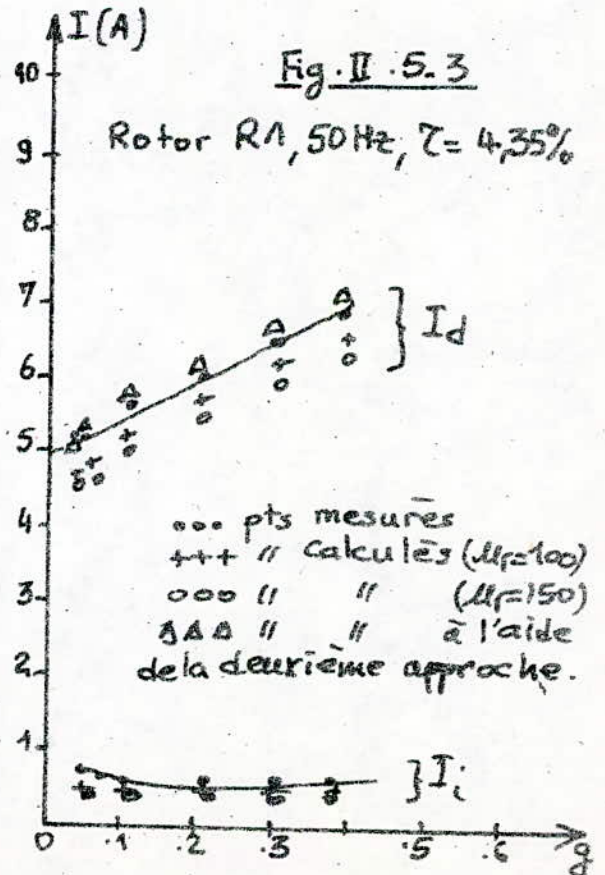 I(A)
Fig. II .5-3
Rotor R1, 50Hz, τ= 4,35%
10
9
8
7
6
5
4
3
2
1
0
.1
.2
.3
.4
.5
.6
g
} Id
... pts mesurēs
+++ " Calculēs (μr=100)
ooo " " (μr=150)
ΔΔΔ " " à l'aide
de la deuxième approche.
} Ii